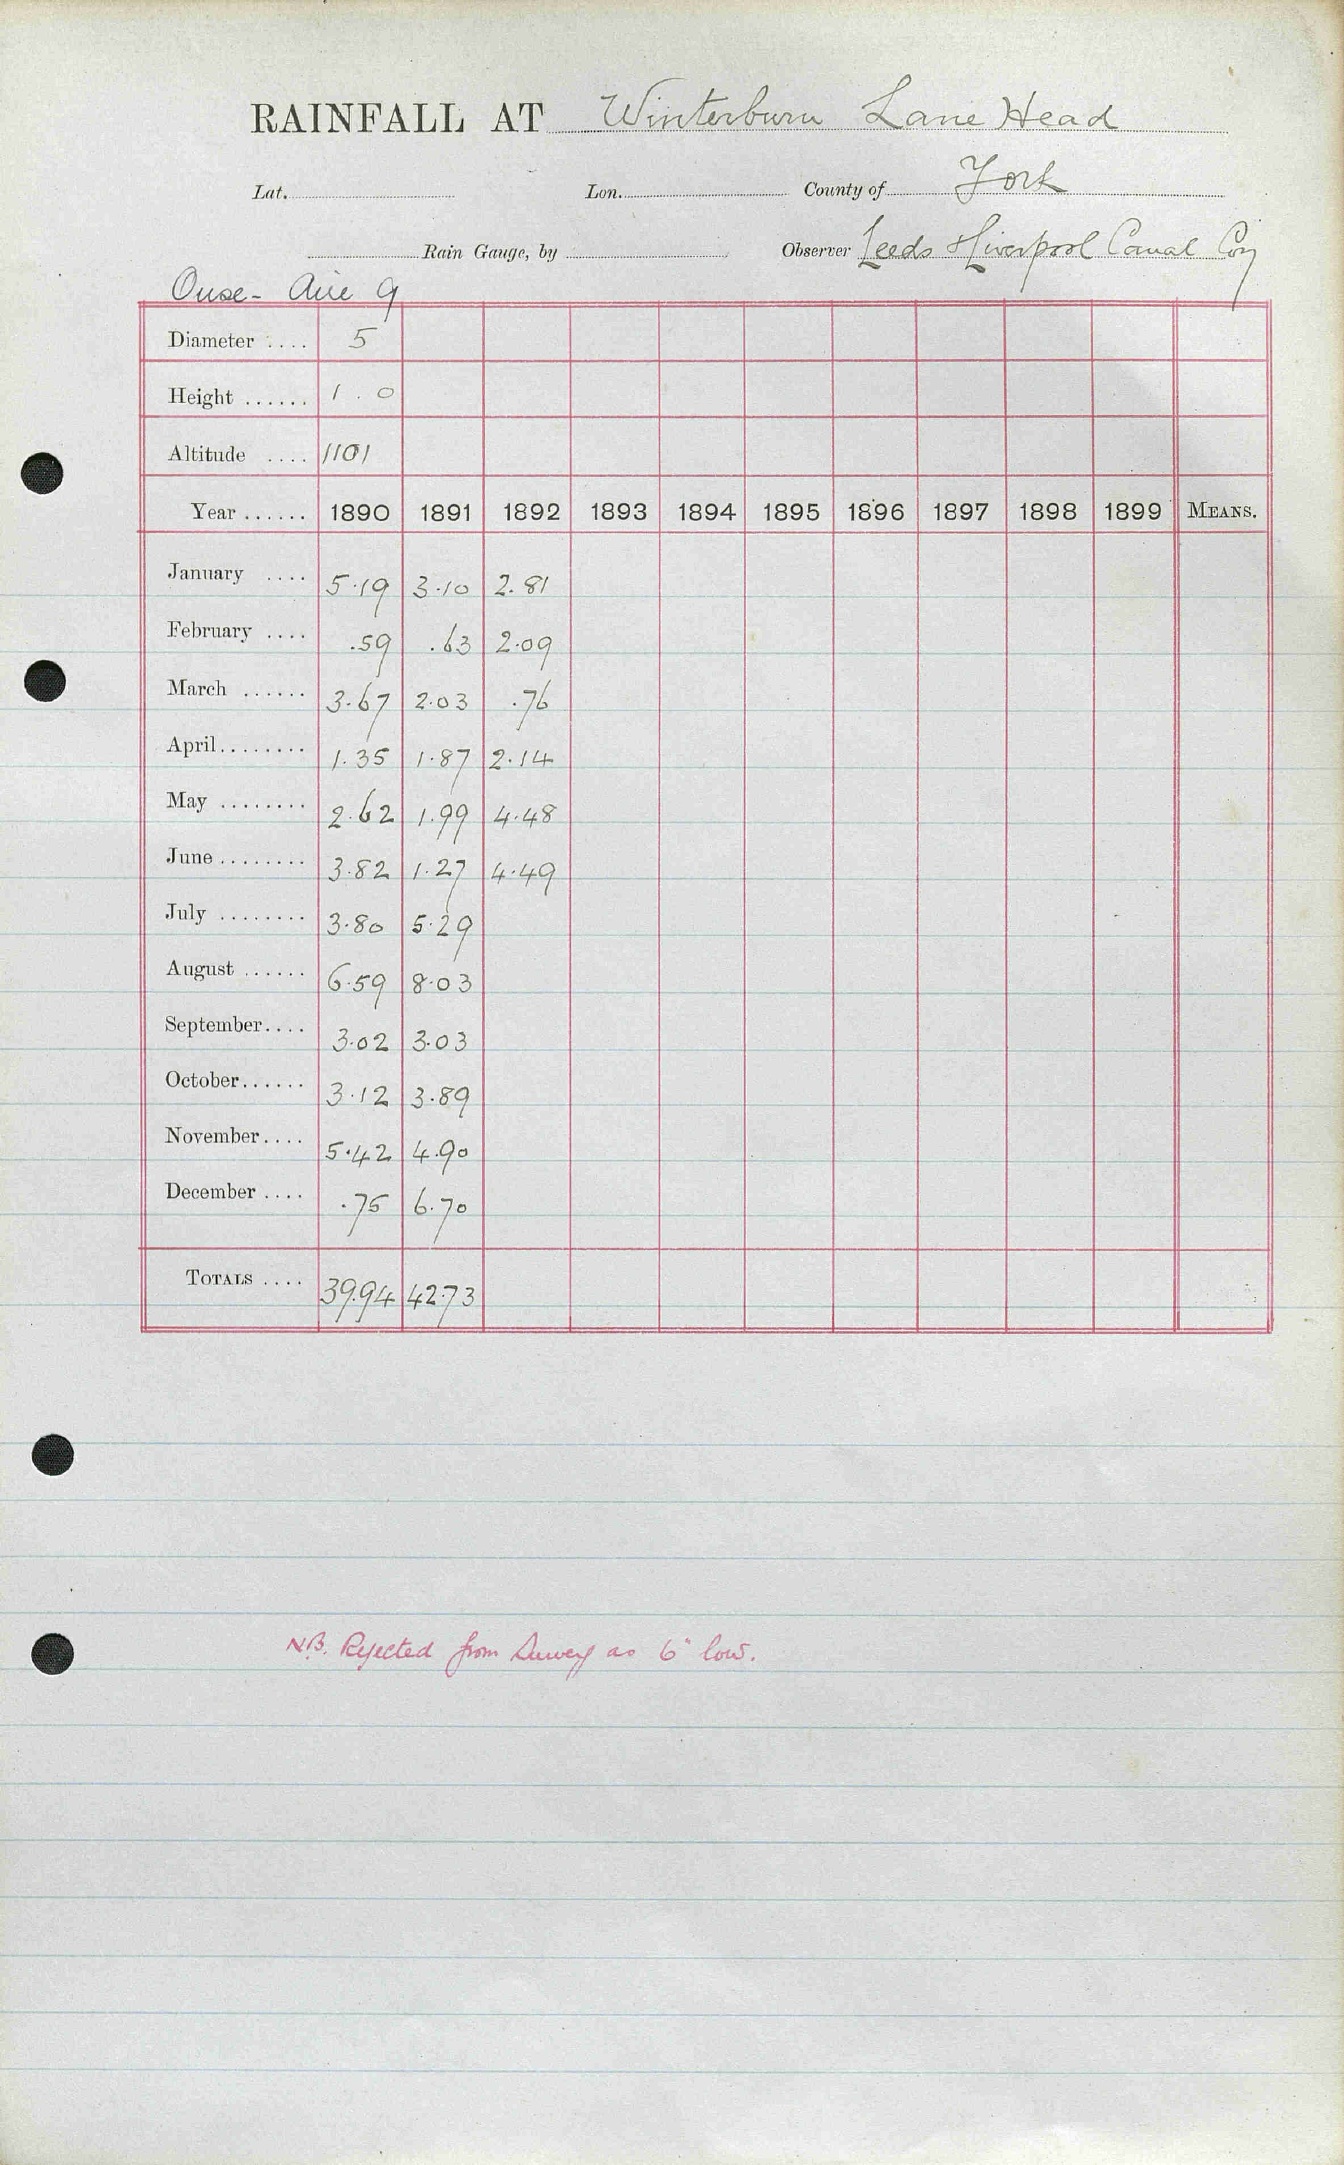 RAINFALL AT Winterburn Lane Head
Lat. Lon. County of York
Rain Gauge, by Observer Leeds & Liverpool Canal Coy
Ouse - Aire 9
Diameter .... 5
Height ...... 1 . 0
Altitude .... 1101
Year ...... 1890 1891 1892 1893 1894 1895 1896 1897 1898 1899 MEANS.
January .... 5.19 3.10 2.81
February .... .59 .63 2.09
March ...... 3.67 2.03 .76
April ........ 1.35 1.87 2.14
May ........ 2.62 1.99 4.48
June ........ 3.82 1.27 4.49
July ........ 3.80 5.29
August ...... 6.59 8.03
September .... 3.02 3.03
October ...... 3.12 3.89
November .... 5.42 4.90
December .... .75 6.70
TOTALS .... 39.94 42.73
N.B. Rejected from Survey as 6" low.